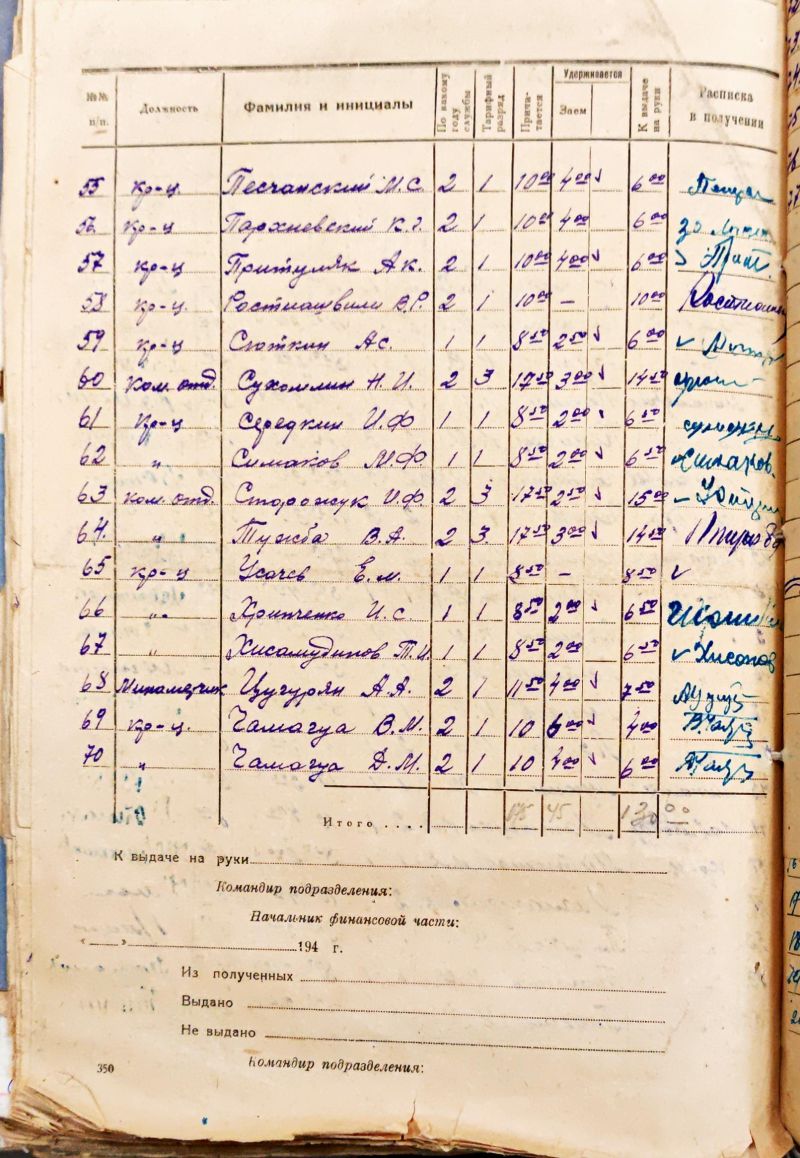 №№ п/п. Должность Фамилия и инициалы По какому году службы Тарифный разряд Причитается Удерживается Заем К выдаче на руки Расписка в получении
55 кр-ц. Песчанский М.С. 2 1 10 00 4 00 6 00
56 кр-ц Пархневский К.г. 2 1 10 00 4 00 6 00 за
57 кр-ц Притуляк А.К. 2 1 10 00 4 00 6 00 Прит
58 кр-ц. Ростиашвили В.Р. 2 1 10 00 — 10 00
59 кр-ц Сюткин А.С. 1 1 8 50 2 50 6 00
60 ком. отд. Сухомлин Н.И. 2 3 17 50 3 00 14 50
61 кр-ц Середкин И.Ф 1 1 8 50 2 00 6 50
62 " Симаков М.Ф. 1 1 8 50 2 00 6 50 Симаков.
63 ком. отд. Сторожук И.Ф. 2 3 17 50 2 50 15 00
64. " Тужба В.А. 2 3. 17 50 3 00 14 50
65 кр-ц Усачев Е.М. 1 1 8 50 — 8 50
66 " Хрипченко И.С. 1 1 8 50 2 00 6 50
67 " Хисамудинов Т.И. 1 1 8 50 2 00 6 50 Хисамов
68 Минометчик Цугурян А.А. 2 1 11 50 4 00 7 50
69 кр-ц. Чамагуа В.М. 2 1 10 6 00 4 00
70 " Чамагуа Д.М. 2 1 10 4 00 6 00
Итого .... 175 45 130 00
К выдаче на руки
Командир подразделения:
Начальник финансовой части:
« » 194 г.
Из полученных
Выдано
Не выдано
350 Командир подразделения: